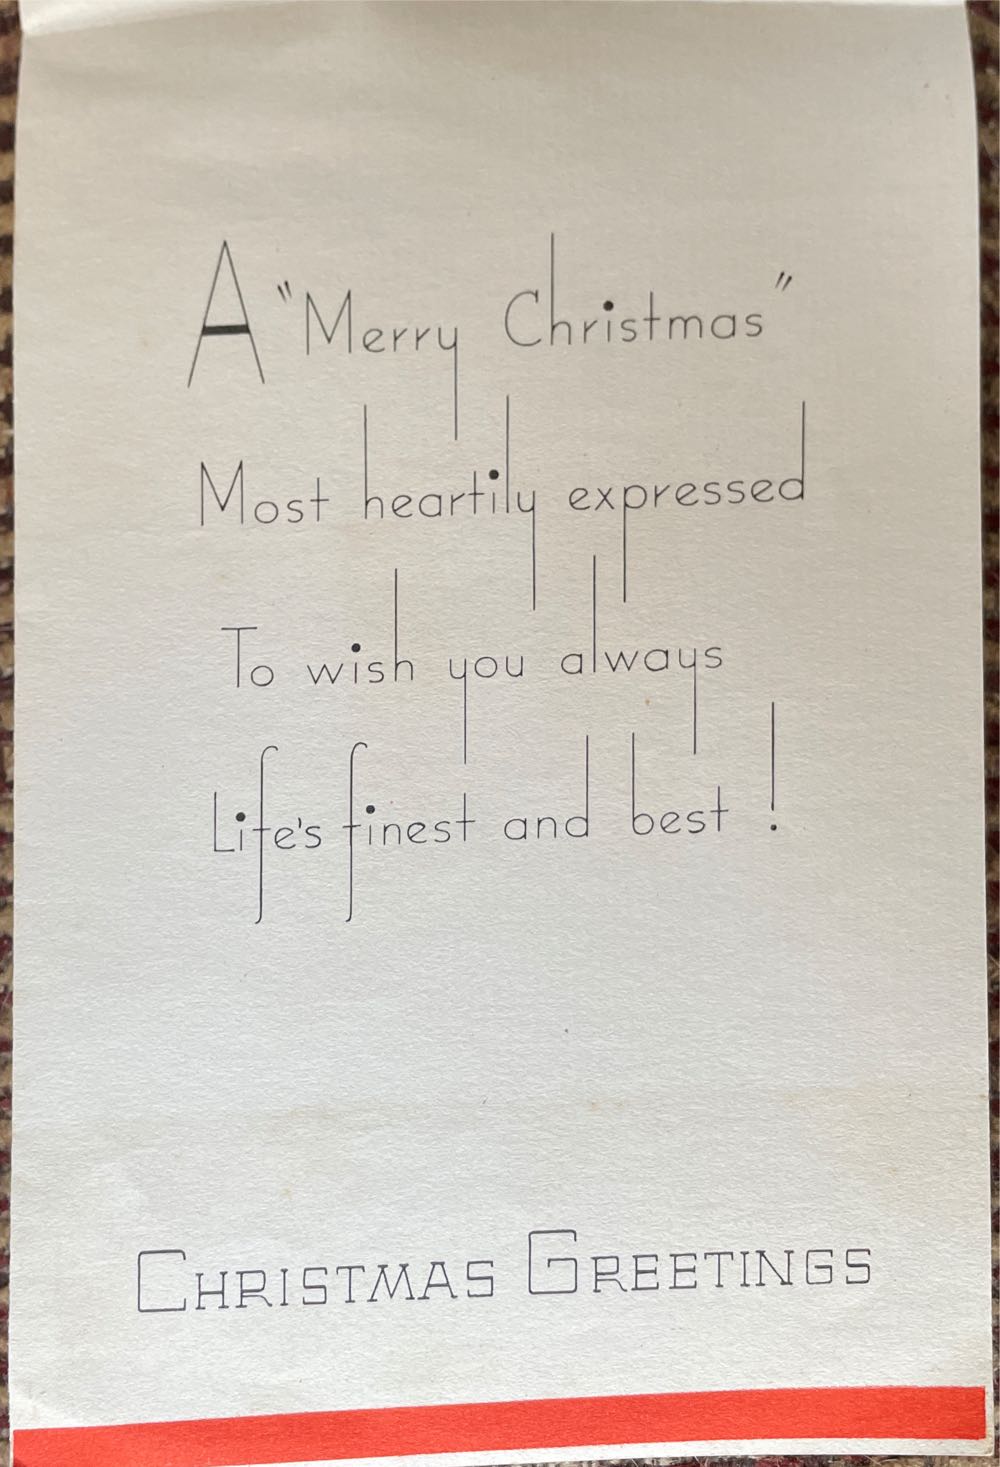 A "Merry Christmas"
Most heartily expressed
To wish you always
Life's finest and best !
CHRISTMAS GREETINGS